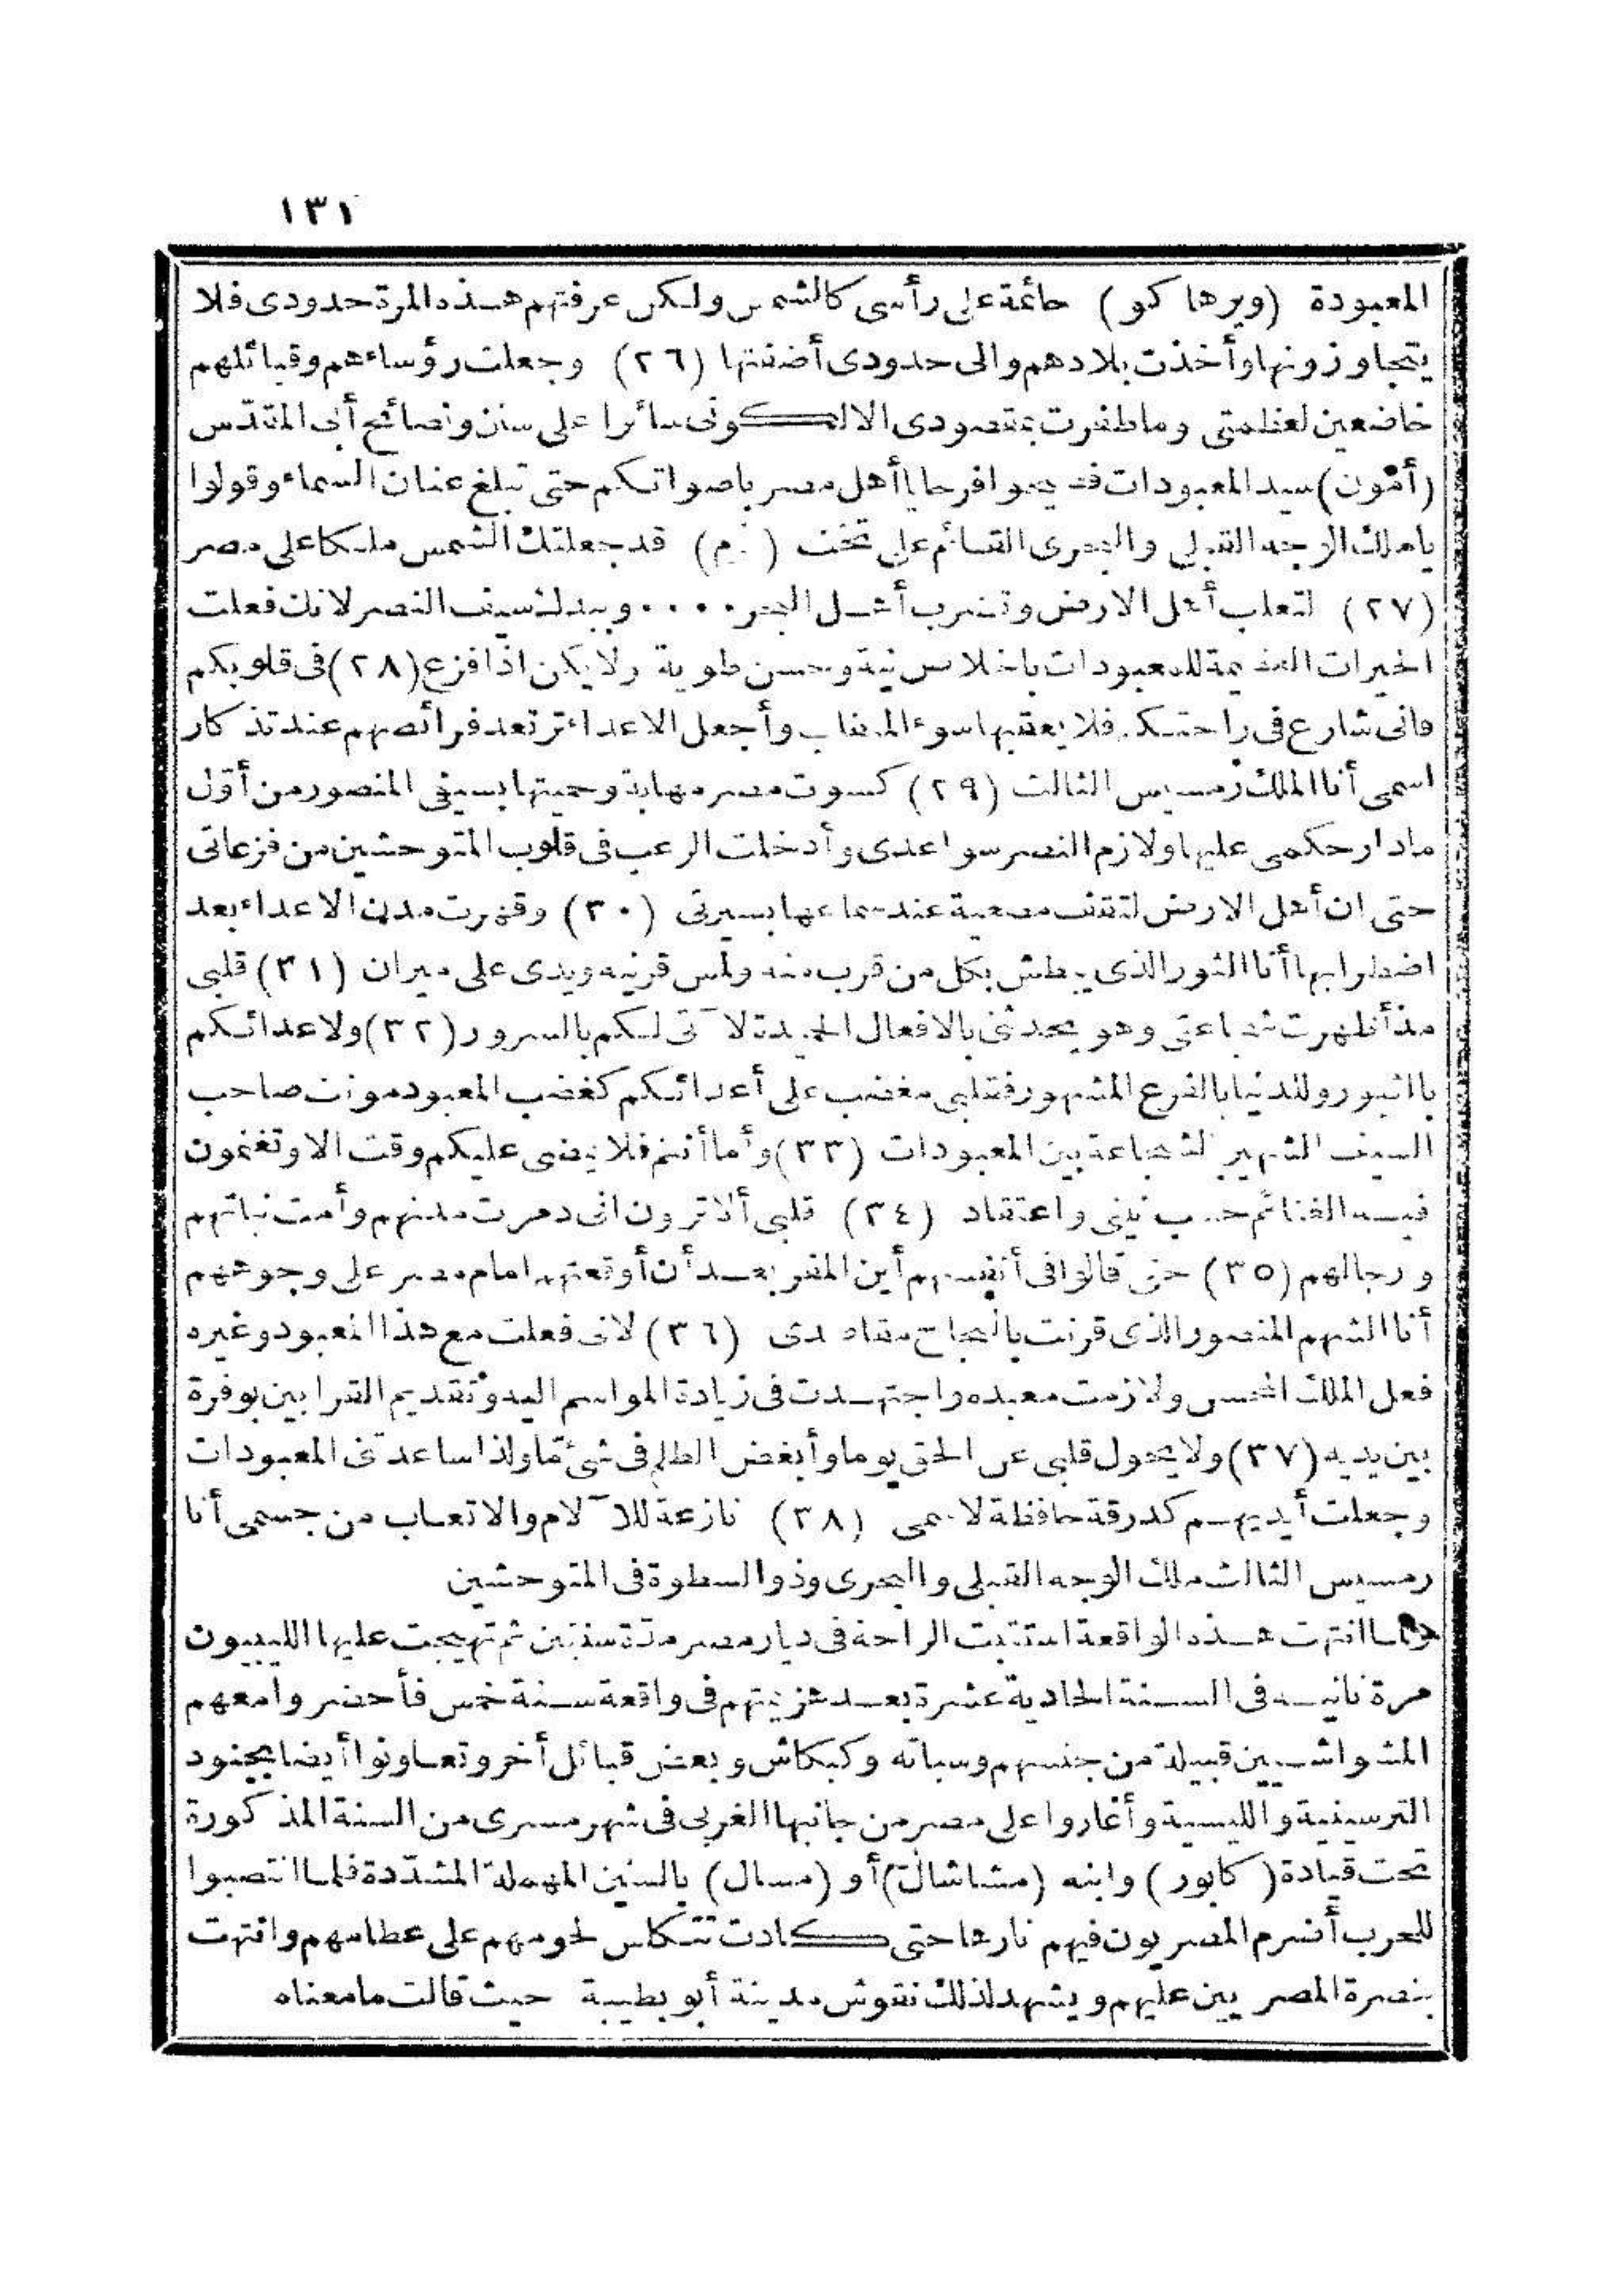 ١٣١
المعبودة (ويرهاكو) حائمة على رأسى كالشمس ولكن عرفتهم هذه المرة حدودى فلا
يتجاوزونها وأخذت بلادهم والى حدودى أضفتها (٢٦) وجعلت رؤساءهم وقبائلهم
خاضعين لعظمتى وما ظفرت بمقصودى الا لكونى سائرا على سنن ونصائح أبى المقدّس
(أمّون) سيد المعبودات فصيحوا فرحا يا أهل مصر باصواتكم حتى تبلغ عنان السماء وقولوا
يا ملك الوجه القبلى والبحرى القائم على تخت قد جعلتك الشمس ملكا على مصر
(٢٧) لتغلب أهل الارض وتضرب أهل البحر .... وبيدك سيف النصر لانك فعلت
الخيرات العظيمة للمعبودات باخلاص نية وحسن طوية ولا يكن اذا فزع (٢٨) فى قلوبكم
فانى شارع فى راحتكم فلا يعقبها سوء المـ وأجعل الاعداء ترتعد فرائصهم عند تذكار
اسمى أنا الملك رمسيس الثالث (٢٩) كسوت مصر مهابة وحميتها بسيفى المنصور من أوّل
مادار حكمى عليها ولازم النصر سواعدى وأدخلت الرعب فى قلوب المتوحشين من فزعاتى
حتى ان أهل الارض لتقف مصغية عند سماعها بسيرتى (٣٠) وقهرت مدن الاعداء بعد
اضطرابها أنا الثور الذى يبطش بكل من قرب منه ولمس قرنيه ويدى على ميزان (٣١) قلبى
مذ أظهرت شجاعتى وهو يحدثنى بالافعال الحميدة لآتى لكم بالسرور (٣٢) ولاعدائكم
بالثبور وللدنيا بالفزع المشهور فقلبى مغضب على أعدائكم كغضب المعبود مونت صاحب
السيف الشهير الشجاعة بين المعبودات (٣٣) وأما أنتم فلا يمضى عليكم وقت الا وتغنمون
فيه الغنائم حسب نيتى واعتقاد (٣٤) قلبى ألا ترون انى دمرت مدنهم وأمت نباتهم
ورجالهم (٣٥) حتى قالوا فى أنفسهم أين المفر بعد أن أوقعتهم امام مصر على وجوههم
أنا الشهم المنصور الذى قرنت بالنجاح مقاصدى (٣٦) لانى فعلت مع هذا المعبود وغيره
فعل الملك المحسن ولازمت معبده واجتهدت فى زيادة المواسم اليه وتقديم القرابين بوفرة
بين يديه (٣٧) ولا يحول قلبى عن الحق يوما وأبغض الظلم فى شئ مّا ولذا ساعدتنى المعبودات
وجعلت أيديهم كدرقة حافظة لاسمى (٣٨) نازعة للآلام والاتعاب من جسمى أنا
رمسيس الثالث ملك الوجه القبلى والبحرى وذو السطوة فى المتوحشين
ولما انتهت هذه الواقعة استتبت الراحة فى ديار مصر مدّة سنتين ثم تهيجت عليها الليبيون
مرة ثانيه فى السنة الحادية عشرة بعد هزيمتهم فى واقعة سنة خمس فأحضروا معهم
المشواشيين قبيلة من جنسهم وسباته وكبكاش وبعض قبائل أخر وتعاونوا أيضا بجنود
الترسينية والليسية وأغاروا على مصر من جانبها الغربى فى شهر مسرى من السنة المذكورة
تحت قيادة (كابور) وابنه (مشاشال) أو (مسال) بالسين المهملة المشدّدة فلما انتصبوا
للحرب أضرم المصريون فيهم نارها حتى كادت تتكلس لحومهم على عظامهم وانتهت
بنصرة المصريين عليهم ويشهد لذلك نقوش مدينة أبو بطيبة حيث قالت ما معناه